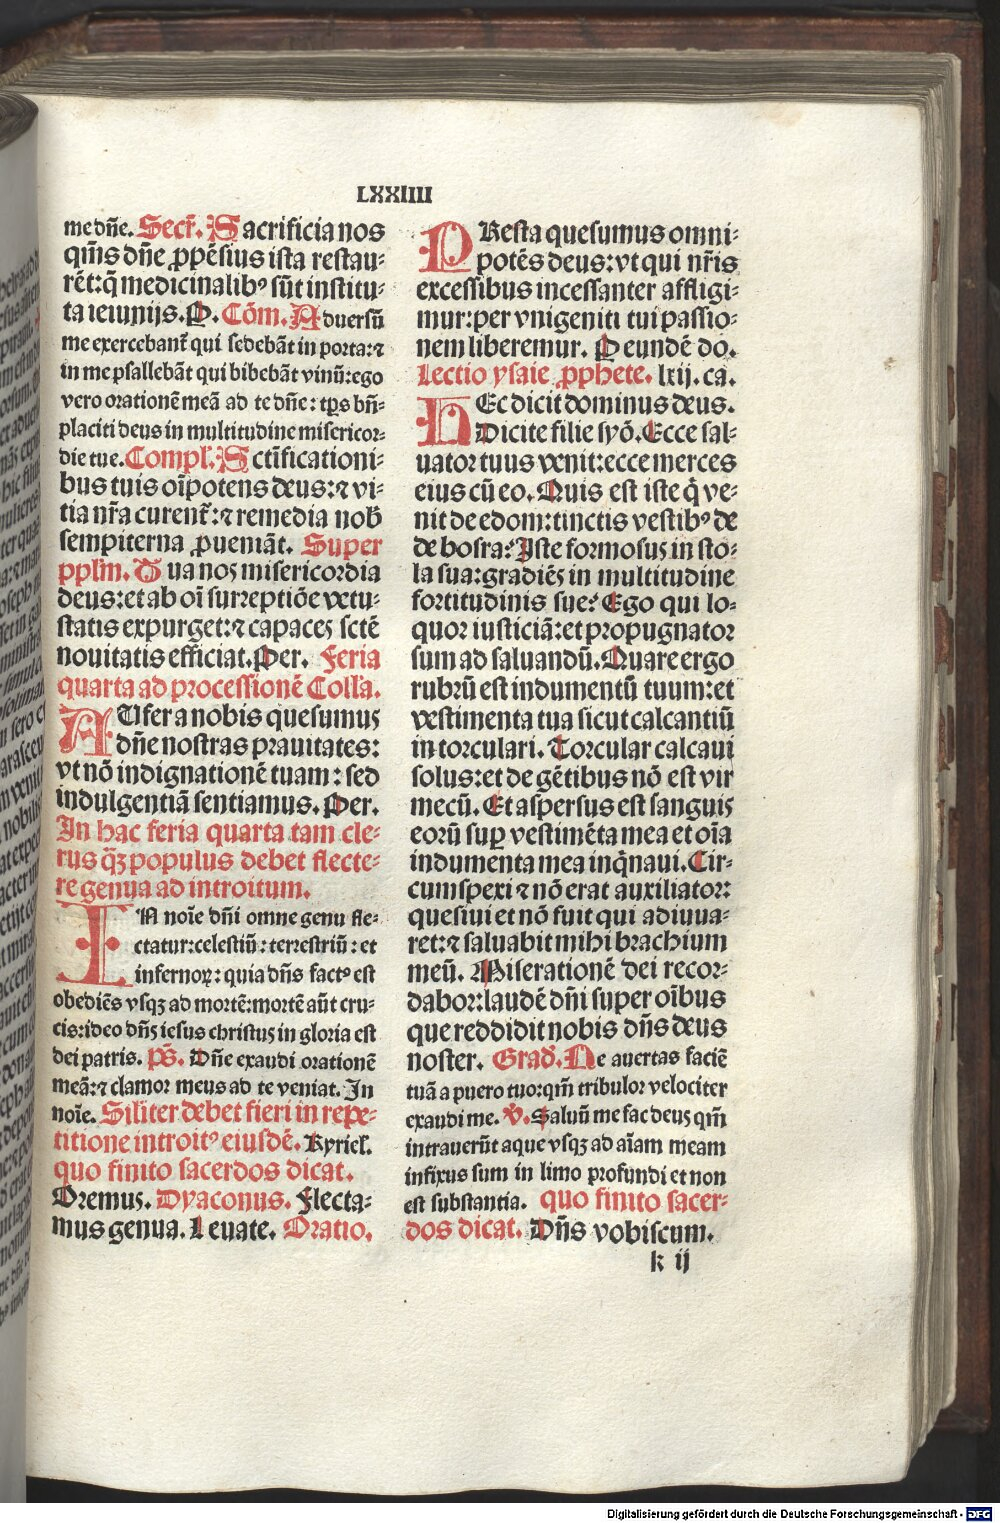 LXXIIII
me dn̄e. Secr̄. Sacrificia nos
qm̄s dn̄e ꝓpēsius ista restau-
rēt: q̄ medicinalibꝰ sūt institu-
ta ieiunijs. P. Cōm. Aduersū
me exercebant̄ qui sedebāt in porta: ⁊
in me psallebāt qui bibebāt vinū: ego
vero orationē meā ad te dn̄e: tp̄s bn̄-
placiti deus in multitudine misericor-
die tue. Compl̄. Sctīficationi-
bus tuis oīpotens deus: ⁊ vi-
tia nr̄a curent̄: ⁊ remedia nob̄
sempiterna ꝓueniāt. Super
pplm̄. Tua nos misericordia
deus: et ab oī surreptiōe vetu-
statis expurget: ⁊ capaces sctē
nouitatis efficiat. Per. Feria
quarta ad processionē Coll̄a.
AUfer a nobis quesumus
dn̄e nostras prauitates:
vt nō indignationē tuam: sed
indulgentiā sentiamus. Per.
In hac feria quarta tam cle-
rus qꝫ̄ populus debet flecte-
re genua ad introitum.
IN noīe dn̄i omne genu fle-
ctatur: celestiū: terrestriū: et
infernoꝝ: quia dn̄s factꝰ est
obediēs vsqꝫ ad mortē: mortē aūt cru-
cis: ideo dn̄s iesus christus in gloria est
dei patris. ps̄. Dn̄e exaudi orationē
meā: ⁊ clamor meus ad te veniat. In
noīe. Siliter debet fieri in repe-
titione introitꝰ eiusdē. Kyriel̄.
quo finito sacerdos dicat.
Oremus. Dyaconus. Flecta-
mus genua. Leuate. Oratio.
PResta quesumus omni-
potēs deus: vt qui nr̄is
excessibus incessanter affligi-
mur: per vnigeniti tui passio-
nem liberemur. Peundē do.
Lectio ysaie ꝓphete. lxij. ca.
HEc dicit dominus deus.
Dicite filie syō. Ecce sal-
uator tuus venit: ecce merces
eius cū eo. Quis est iste q̄ ve-
nit de edom: tinctis vestibꝰ de
de bosra? Iste formosus in sto-
la sua: gradiēs in multitudine
fortitudinis sue? Ego qui lo-
quor iusticiā: et propugnator
sum ad saluandū. Quare ergo
rubrū est indumentū tuum: et
vestimenta tua sicut calcantiū
in torculari. Torcular calcaui
solus: et de gētibus nō est vir
mecū. Et aspersus est sanguis
eorū suꝑ vestimēta mea et oīa
indumenta mea inq̄naui. Cir-
cumspexi ⁊ nō erat auxiliator:
quesiui et nō fuit qui adiuua-
ret: ⁊ saluabit mihi brachium
meū. Miserationē dei recor-
dabor: laudē dn̄i super oībus
que reddidit nobis dn̄s deus
noster. Grad̄. Ne auertas faciē
tuā a puero tuo: qm̄ tribulor velociter
exaudi me. v̄. Saluū me fac deus qm̄
intrauerūt aque vsqꝫ ad aīam meam
infixus sum in limo profundi et non
est substantia. quo finito sacer-
dos dicat. Dn̄s vobiscum.
k ij
Digitalisierung gefördert durch die Deutsche Forschungsgemeinschaft - DFG